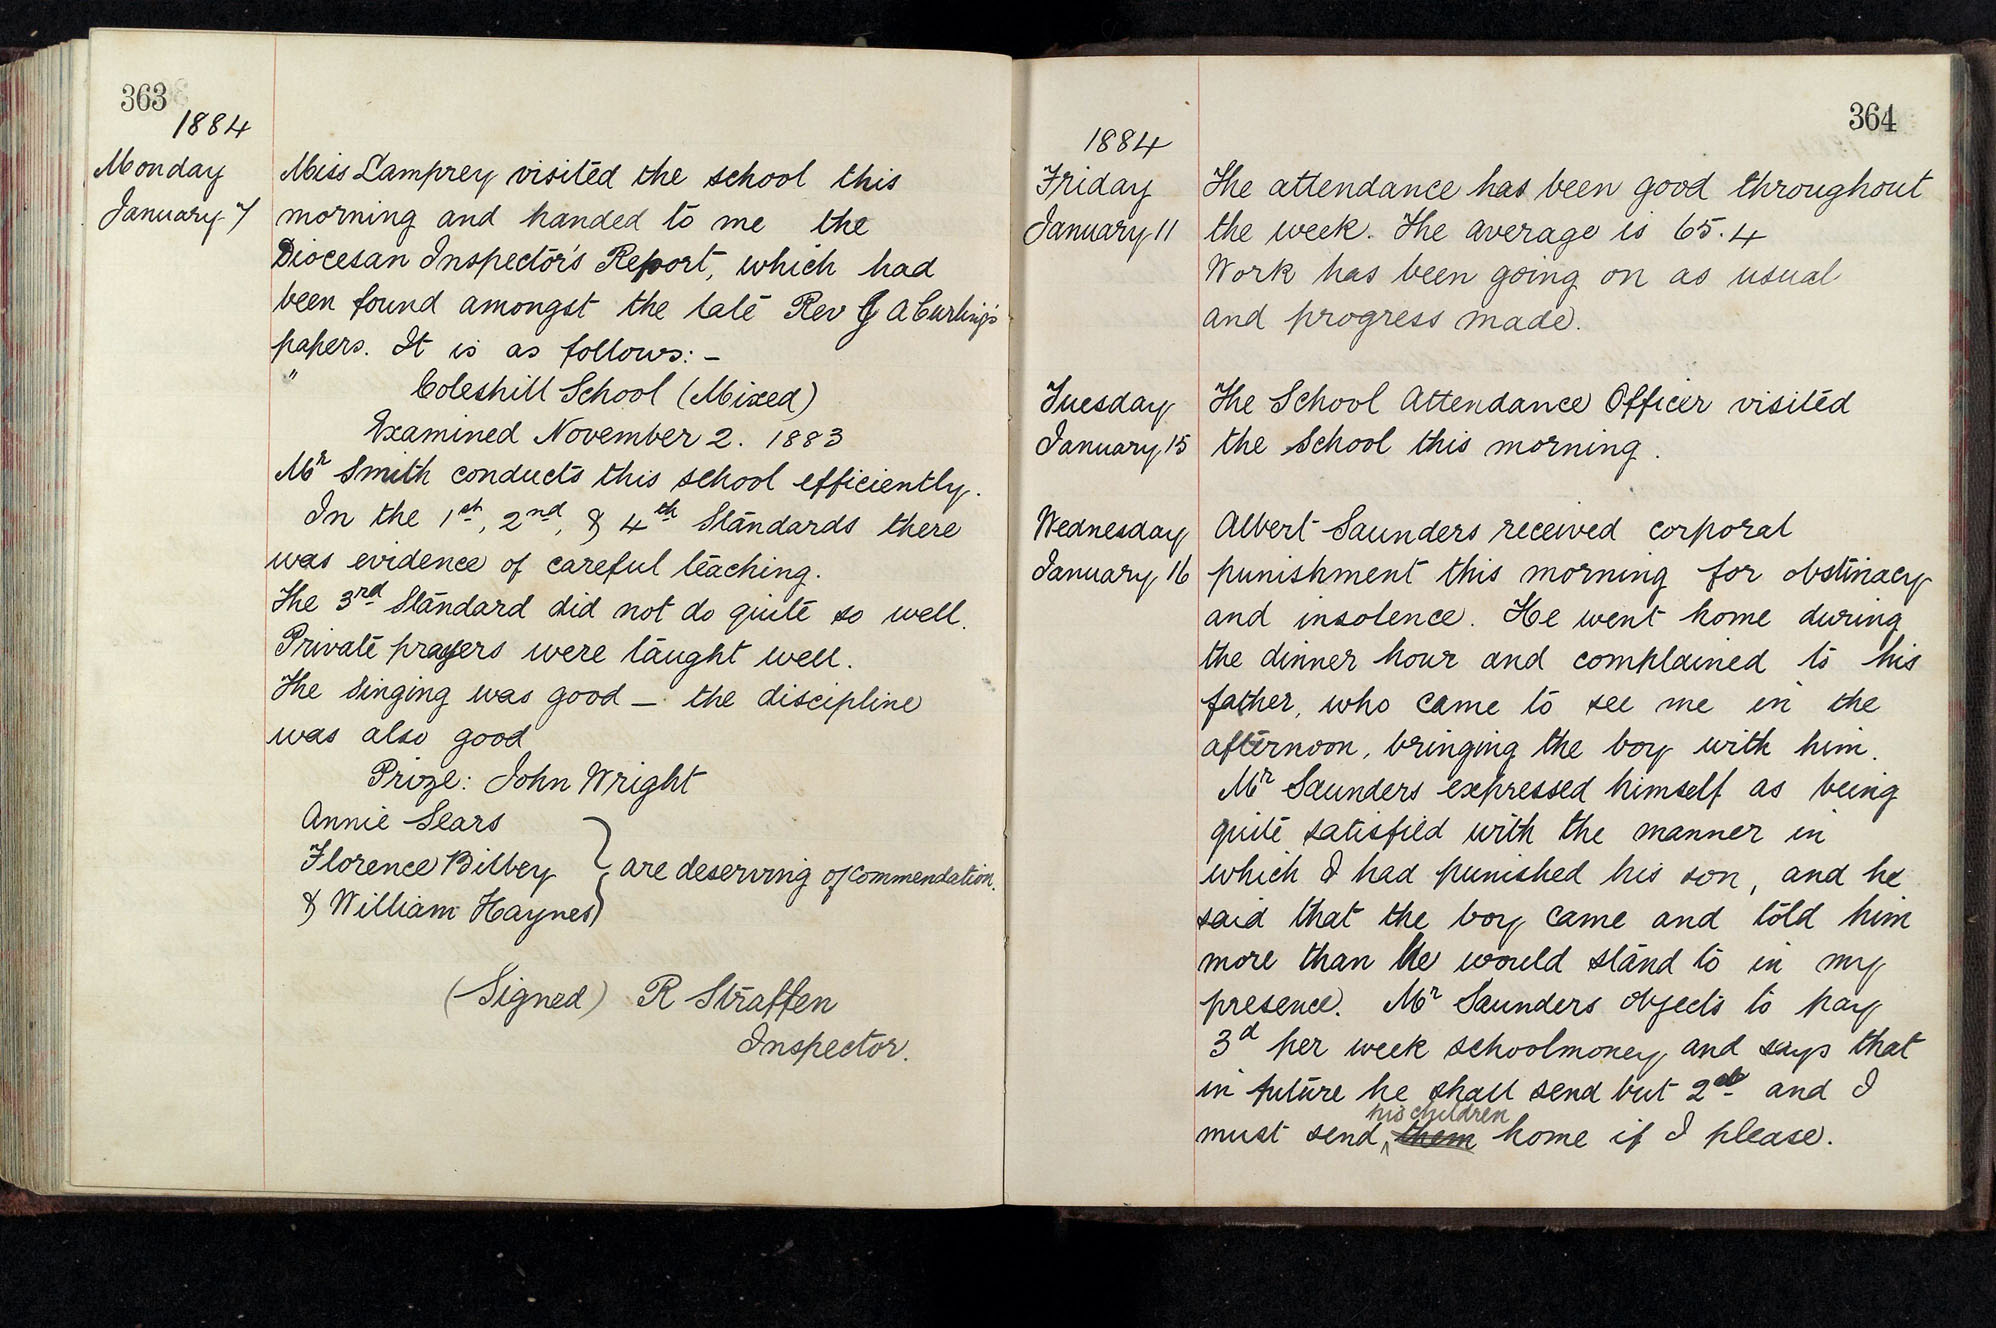 363
1884
Monday
January 7
Miss Lamprey visited the school this
morning and handed to me the
Diocesan Inspector's Report, which had
been found amongst the late Rev G A Curling's
papers. It is as follows: –
" Coleshill School (Mixed)
Examined November 2. 1883
Mr Smith conducts this school efficiently.
In the 1st, 2nd, & 4th Standards there
was evidence of careful teaching.
The 3rd Standard did not do quite so well.
Private prayers were taught well.
The singing was good – the discipline
was also good
Prize: John Wright
Annie Sears
Florence Bilbey } are deserving of commendation.
& William Haynes
(Signed) R Straffen
Inspector.
364
1884
Friday
January 11
The attendance has been good throughout
the week. The average is 65.4
Work has been going on as usual
and progress made.
Tuesday
January 15
The School Attendance Officer visited
the School this morning.
Wednesday
January 16
Albert Saunders received corporal
punishment this morning for obstinacy
and insolence. He went home during
the dinner hour and complained to his
father, who came to see me in the
afternoon, bringing the boy with him.
Mr Saunders expressed himself as being
quite satisfied with the manner in
which I had punished his son, and he
said that the boy came and told him
more than he would stand to in my
presence. Mr Saunders objects to pay
3d per week schoolmoney and says that
in future he shall send but 2d and I
his children
must send ^ them home if I please.